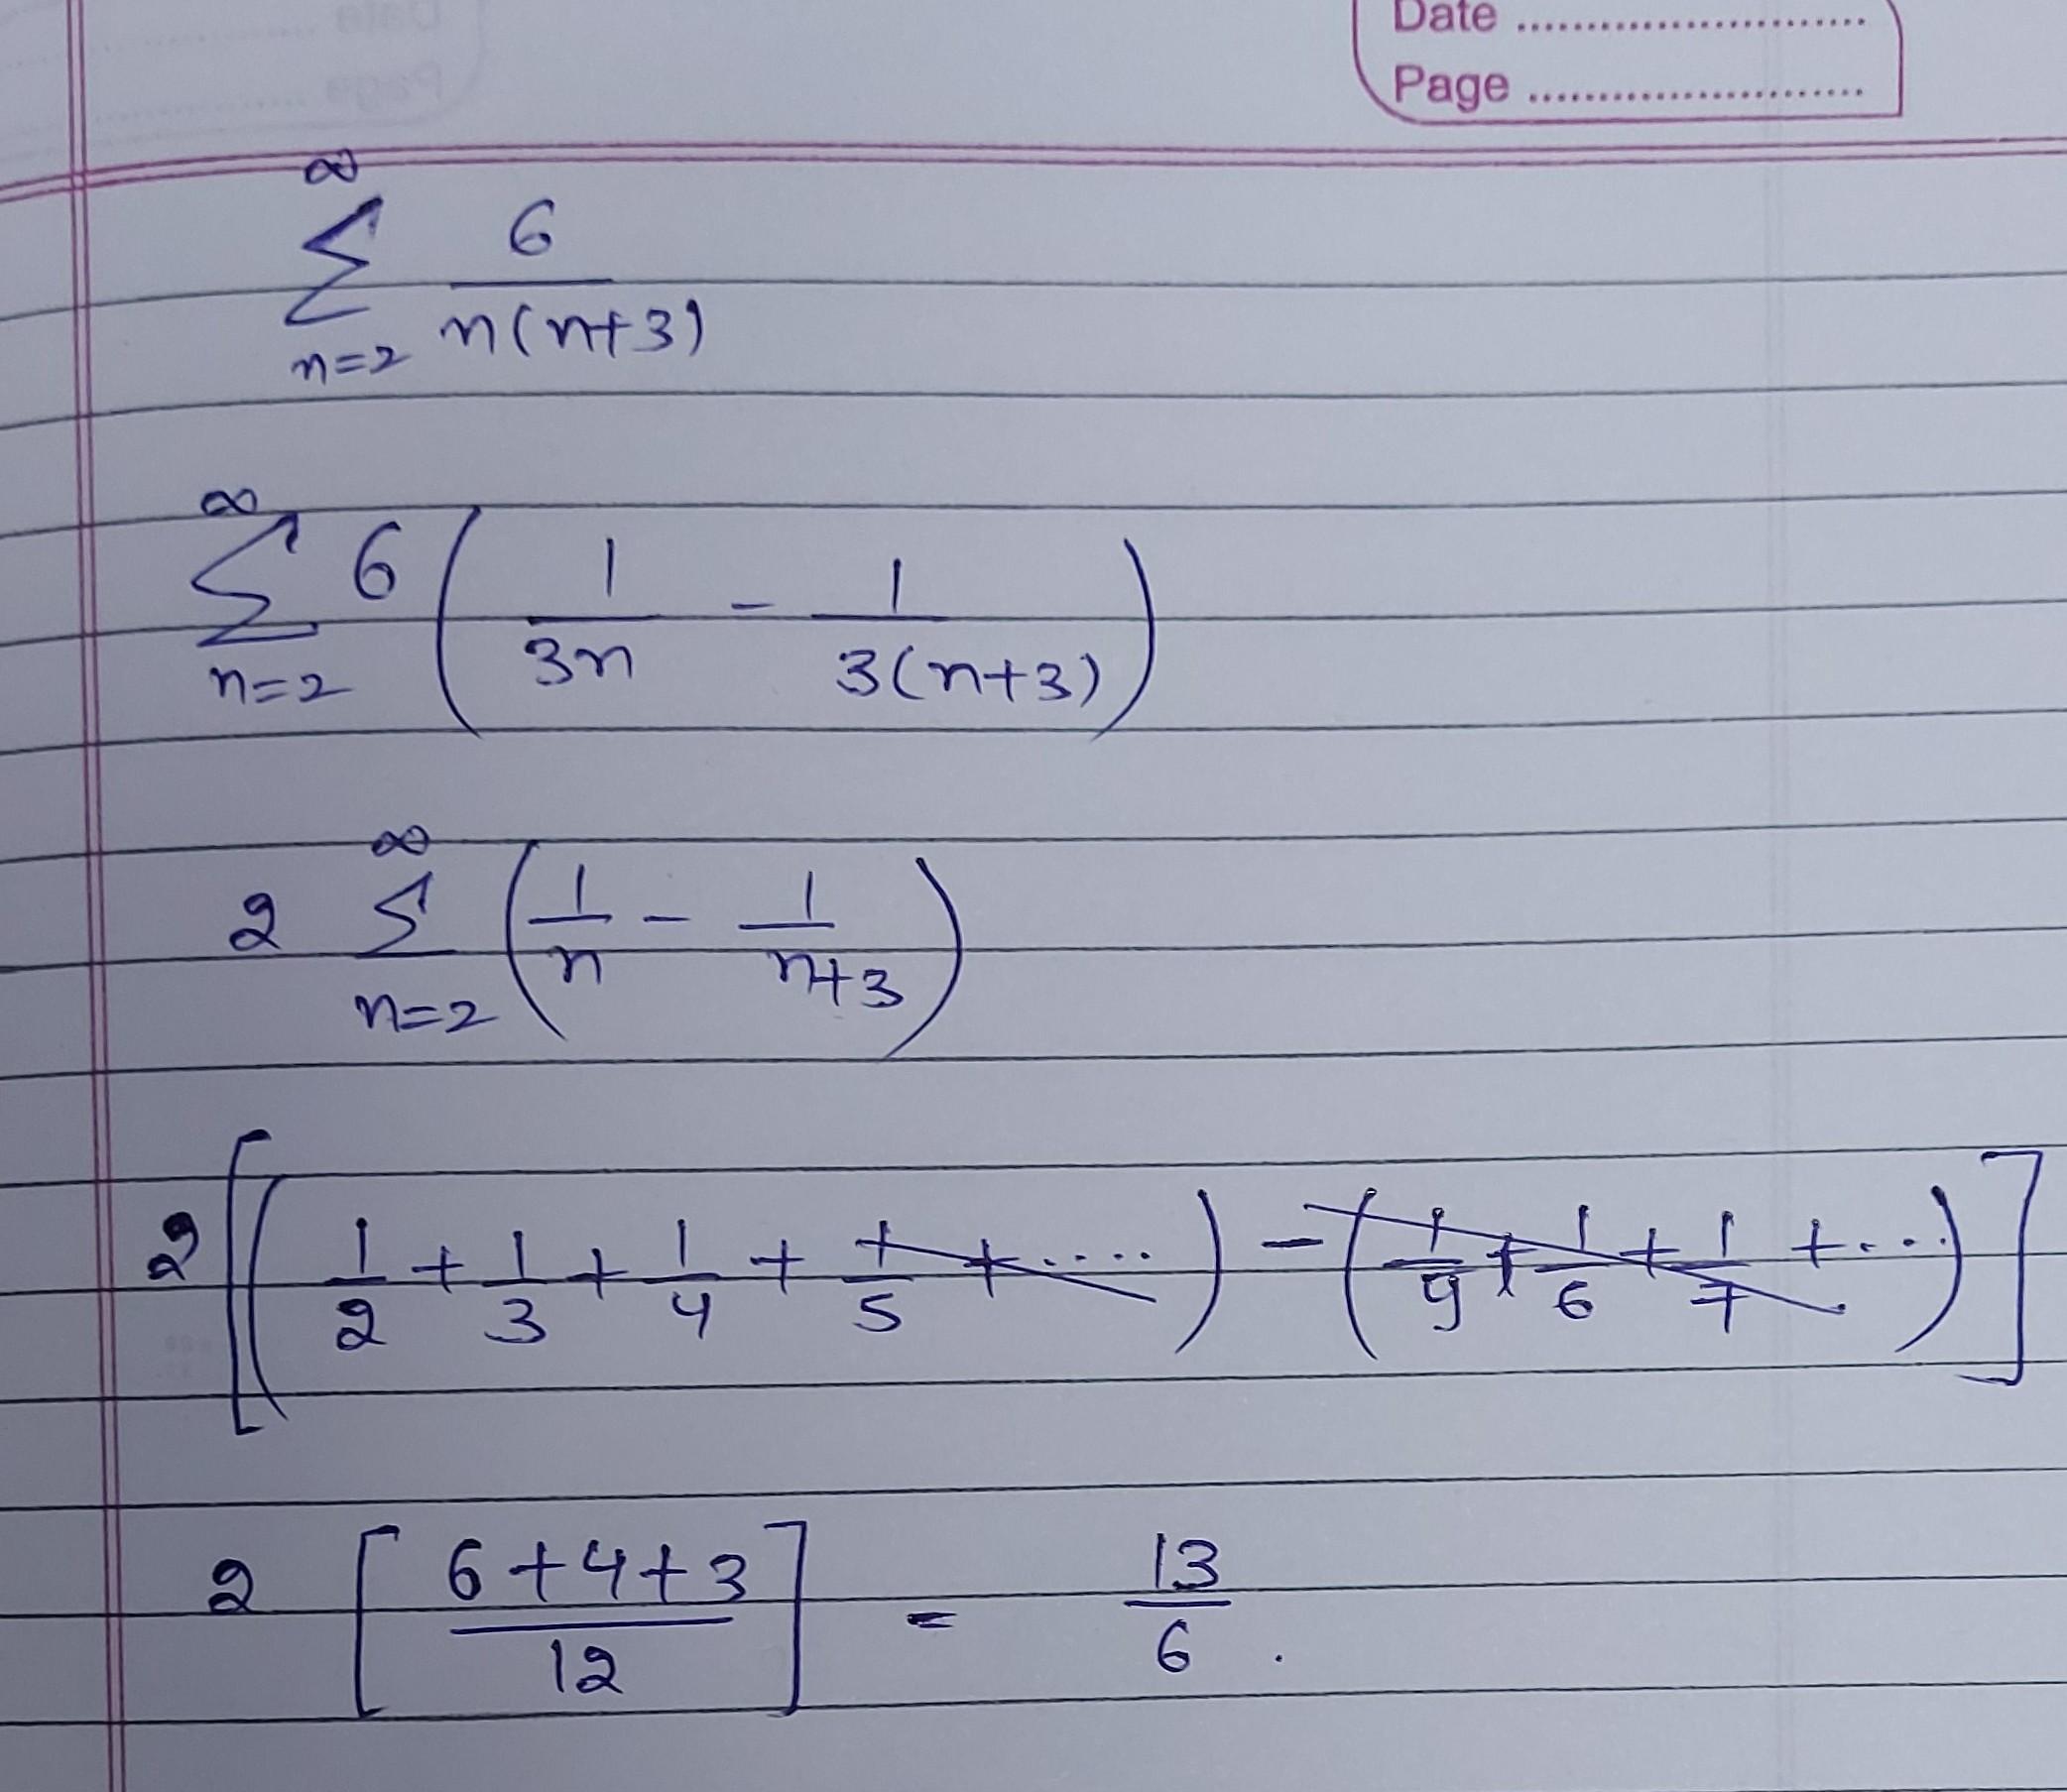 Date ..........................
Page ..........................
∞
Σ 6/(n(n+3))
n=2
∞
Σ 6 ( 1/(3n) - 1/(3(n+3)) )
n=2
∞
2 Σ ( 1/n - 1/(n+3) )
n=2
2 [ ( 1/2 + 1/3 + 1/4 + 1/5 + ..... ) - ( 1/9 + 1/6 + 1/7 + .... ) ]
2 [ (6+4+3)/12 ] = 13/6 .